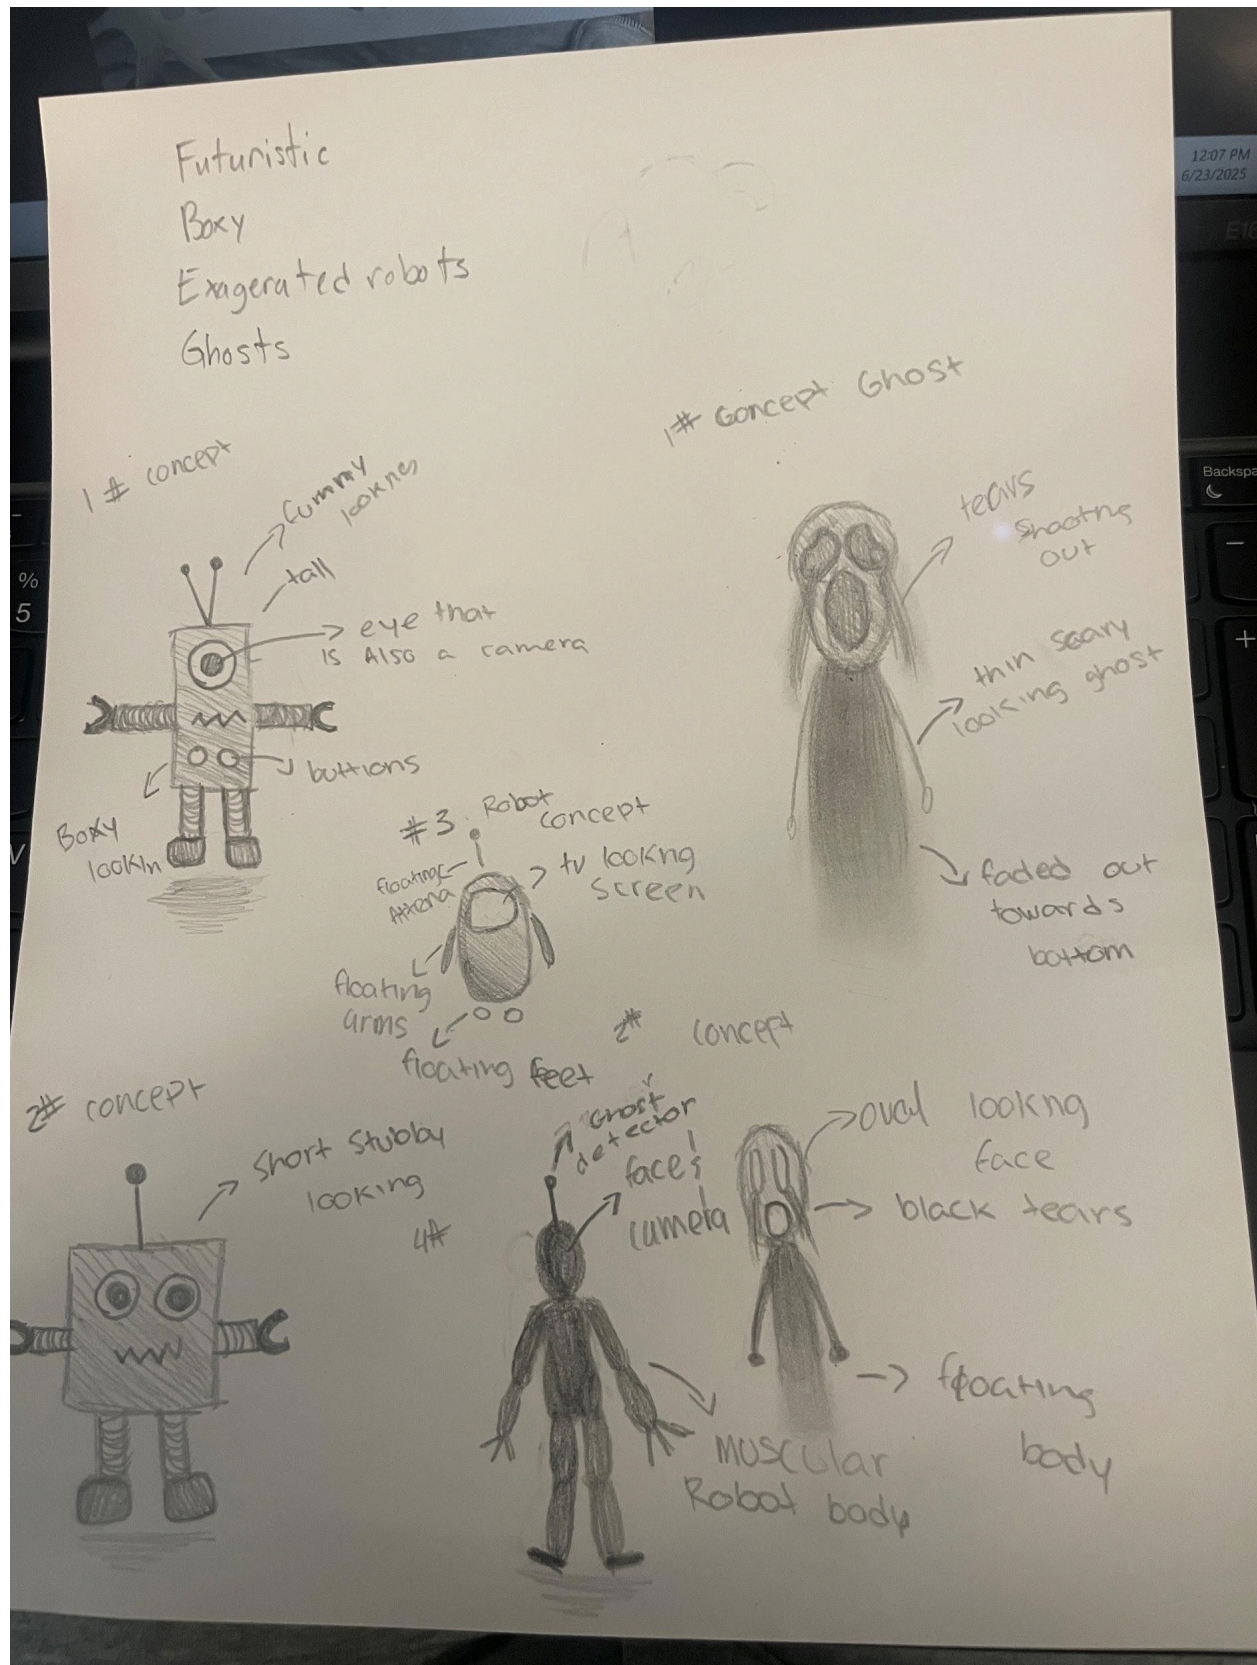 Futuristic
Boxy
Exagerated robots
Ghosts
12:07 PM
6/23/2025
Backspa
%
5
1# concept
tall
eye that
is Also a camera
buttions
Boxy
lookin
1# Concept Ghost
tears
shooting
out
thin scary
looking ghost
faded out
towards
bottom
#3. Robot
concept
tv lookng
screen
floating
floating
arms
floating feet
2# concept
short stubby
looking
4#
Ghost
detector
face
camera
muscular
Robot body
2# concept
oval lookng
face
black tears
floating
body